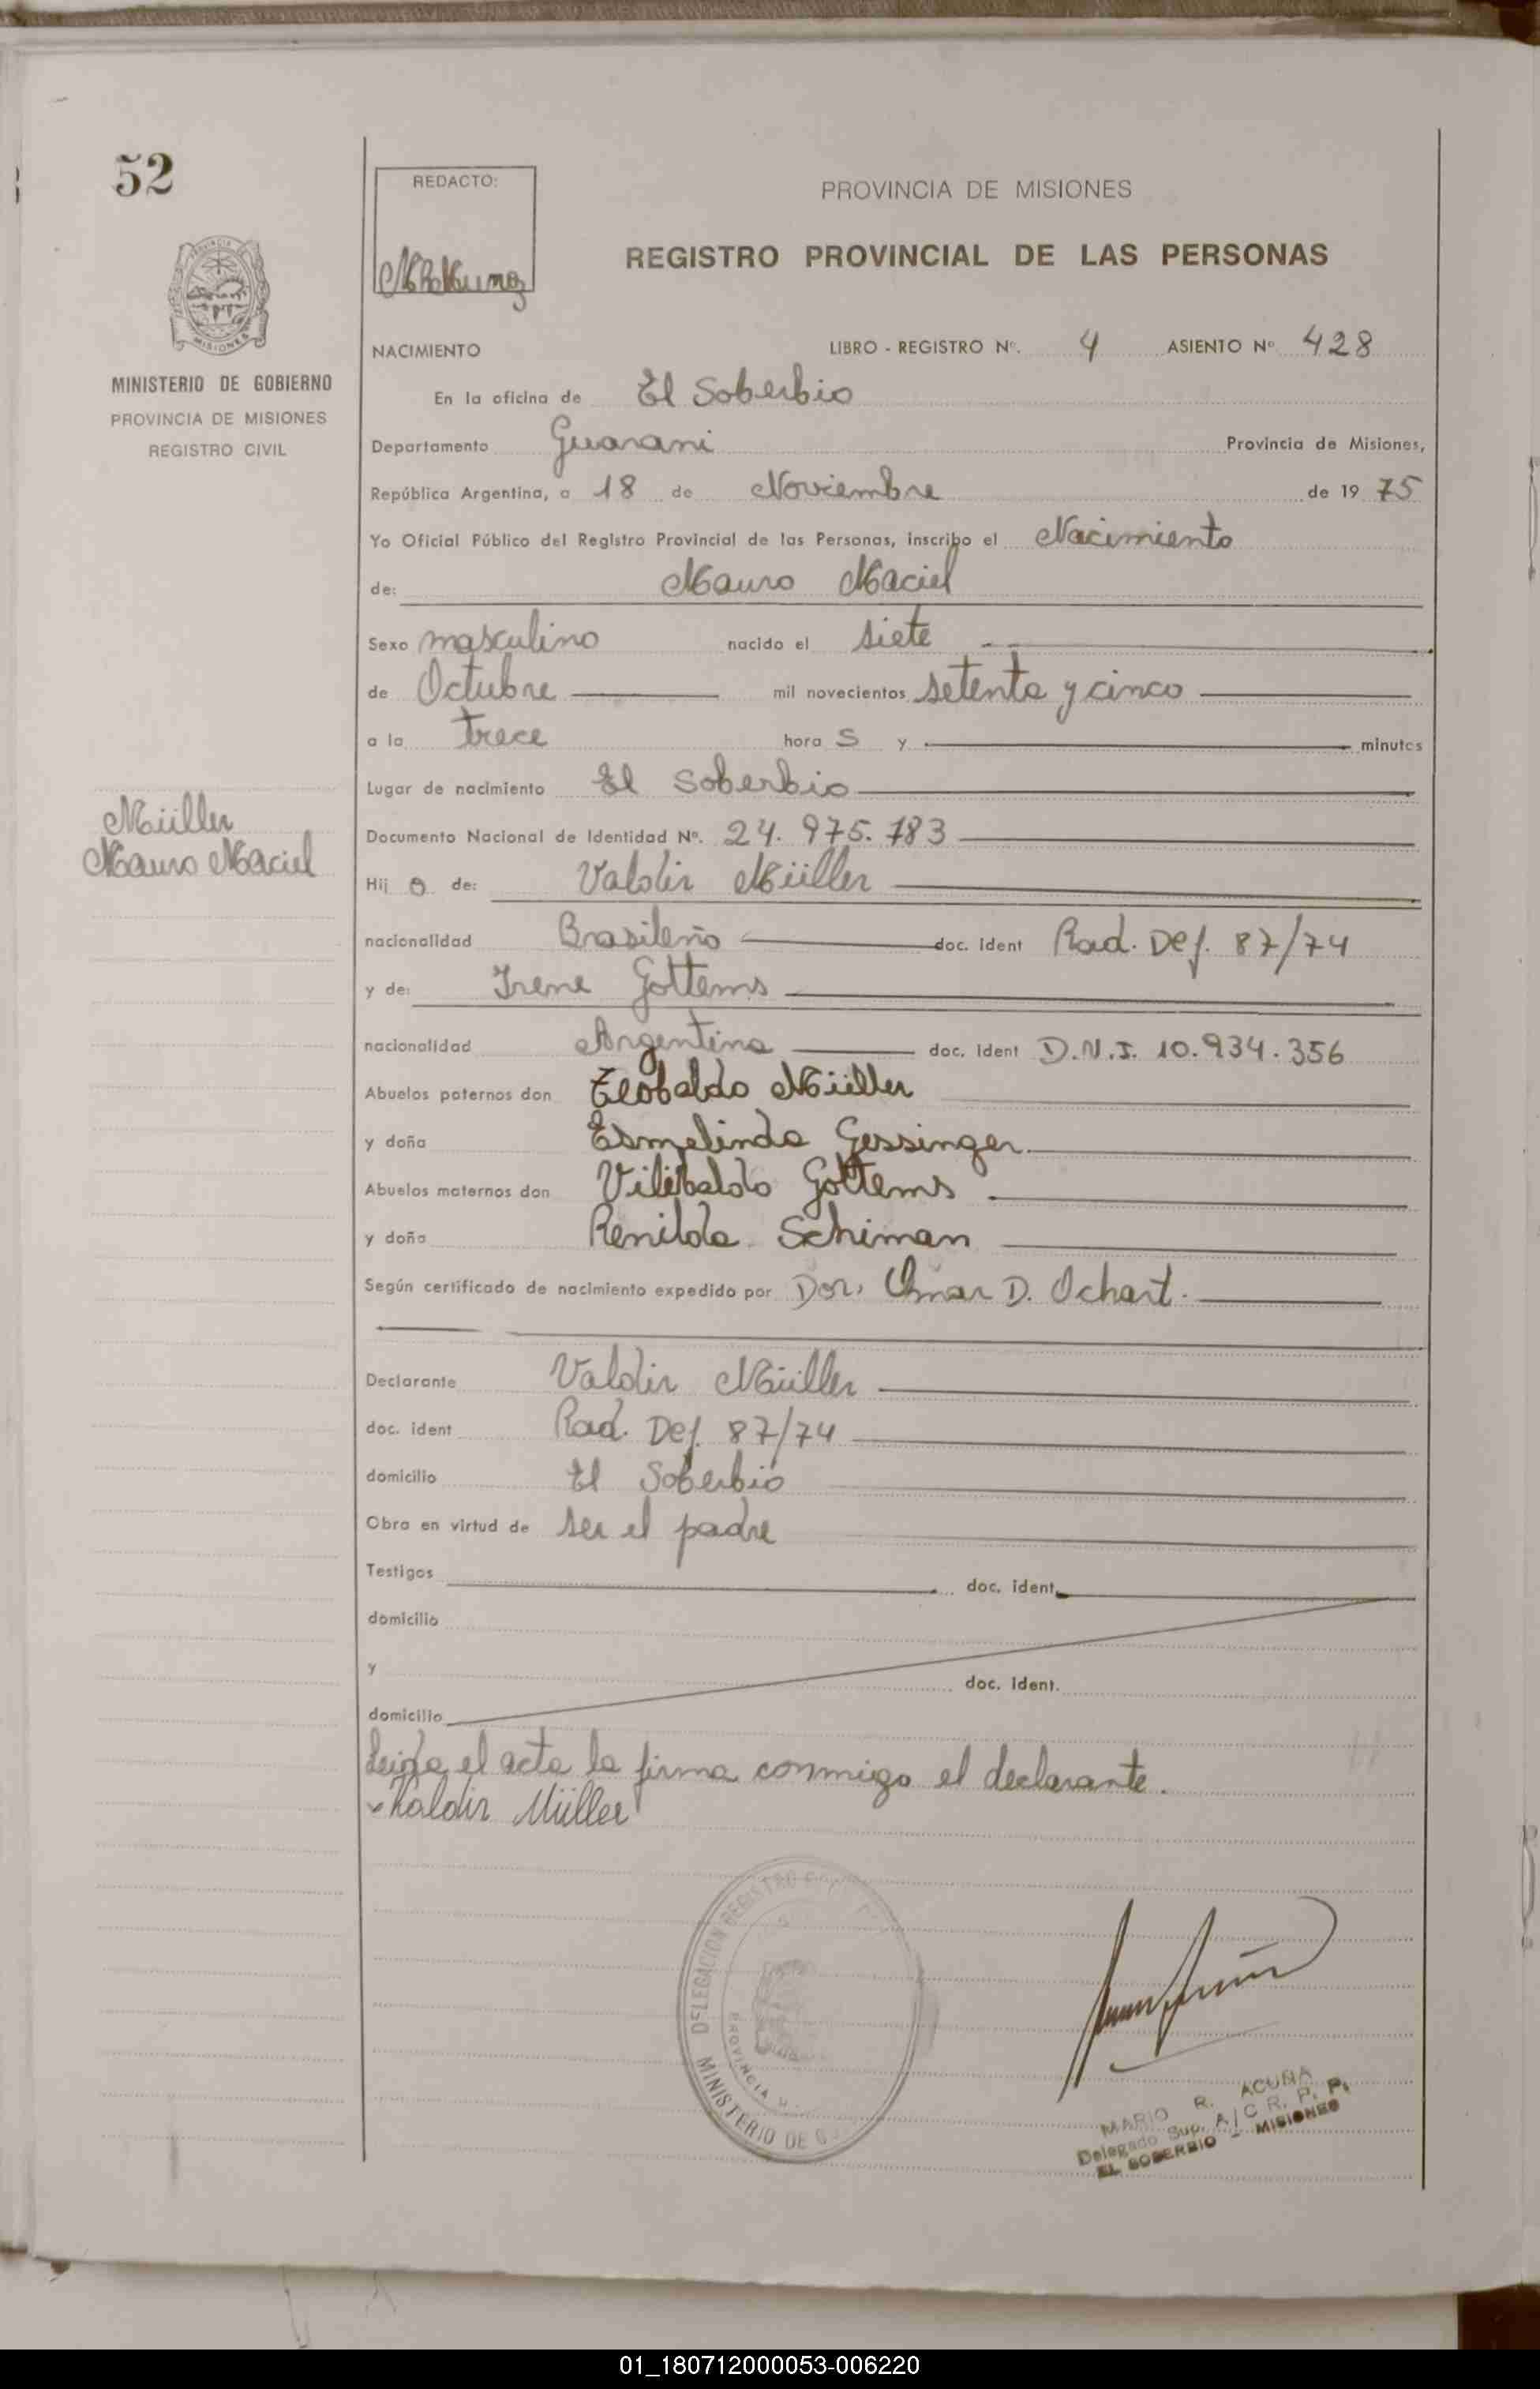 52
REDACTO:
PROVINCIA DE MISIONES
REGISTRO PROVINCIAL DE LAS PERSONAS
MISIONES
MINISTERIO DE GOBIERNO
PROVINCIA DE MISIONES
REGISTRO CIVIL
NACIMIENTO LIBRO - REGISTRO Nº. 4 ASIENTO Nº 428
En la oficina de El Soberbio
Departamento Guarani Provincia de Misiones,
República Argentina, a 18 de Noviembre de 19 75
Yo Oficial Público del Registro Provincial de las Personas, inscribo el Nacimiento
de: Mauro Maciel
Sexo masculino nacido el siete
de Octubre mil novecientos setenta y cinco
a la trece hora s y minutos
Lugar de nacimiento El Soberbio
Müller
Mauro Maciel
Documento Nacional de Identidad Nº. 24.975.783
Hij o de: Valdir Müller
nacionalidad Brasileño doc. ident Rad. Def. 87/74
y de: Irene Gottems
nacionalidad Argentina doc. ident D.N.I. 10.934.356
Abuelos paternos don Teobaldo Müller
y doña Esmelinda Gessinger
Abuelos maternos don Vilibaldo Gottems
y doña Renilda Schiman
Según certificado de nacimiento expedido por Dor. Omar D. Ochart.
Declarante Valdir Müller
doc. ident Rad. Def. 87/74
domicilio El Soberbio
Obra en virtud de ser el padre
Testigos doc. ident.
domicilio
y doc. ident.
domicilio
Leida el acta la firma conmigo el declarante.
Valdir Müller
DELEGACION REGISTRO
PROVINCIA
MINISTERIO DE G
MARIO R. ACUÑA
Delegado Sup. A/C R. P. P.
EL SOBERBIO - MISIONES
01_180712000053-006220